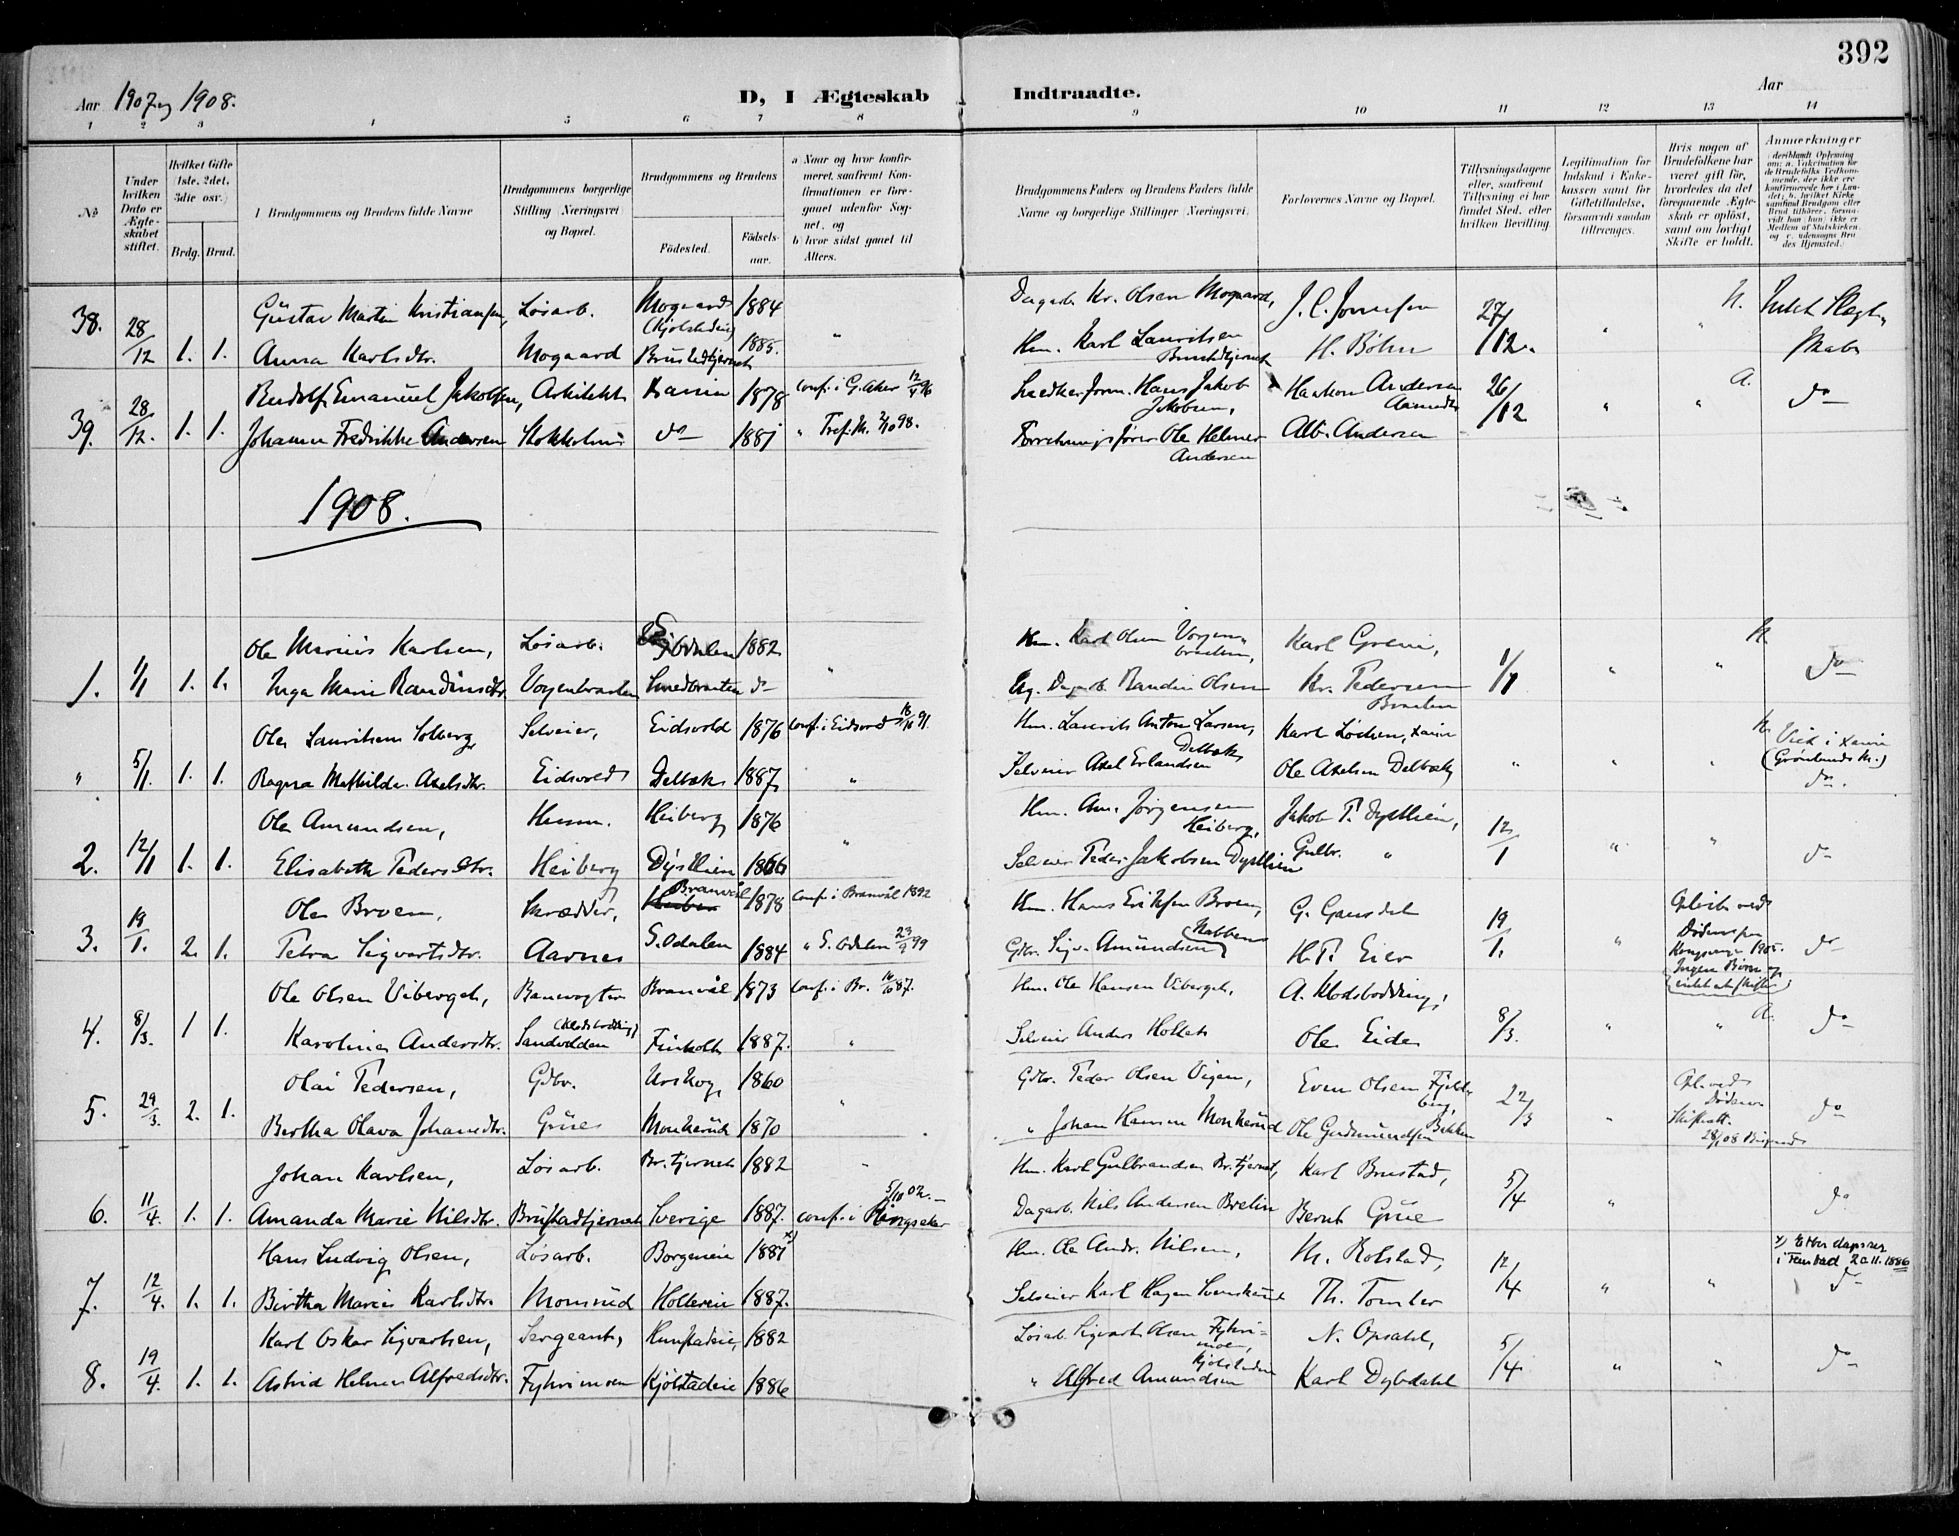 392
Aar 1907 og 1908.
D, I Ægteskab Indtraadte.
Aar
1 2 3 4 5 6 7 8 9 10 11 12 13 14
No
Under hvilken Dato er Ægteskabet stiftet.
Hvilket Gifte 1ste, 2det, 3die osv.)
Brdg. Brud.
Brudgommens og Brudens fulde Navne
Brudgommens borgerlige Stilling Næringsvei og Bopæl.
Brudgommens og Brudens
Födested. Födselsaar.
a Naar og hvor konfirmeret, saafremt Konfirmationen er foregaaet udenfor Sognet, og
b hvor sidst gaaet til Alters.
Brudgommens Faders og Brudens Faders fulde Navne og borgerlige Stillinger Næringsvei.
Forlovernes Navne og Bopæl.
Tillysningsdagene eller, saafremt Tillysning ei har fundet Sted, efter hvilken Bevilling.
Legitimation for Indskud i Enkekassen samt for Giftetilladelse, forsaavidt saadan tiltrænges.
Hvis nogen af Brudefolkene har været gift før, hvorledes da det foregaaende Ægteskab er opløst, samt om lovligt Skifte er holdt.
Anmerkninger
38. 28/12 1. 1. Gustav Martin Kristiansen, Løsarb. Mogaard (Kjølstadeie) 1884 " Dagarb. Kr. Olsen Mogaard, 27/12. " " Intet Slegt-
Anna Karlsdtr. Mogaard 1885. Hm. Karl Lauritsen H. Böhn skab
39. 28/12. 1. 1. Rudolf Emanuel Jakobsen, Arkitekt Xania 1878 conf. i G. Aker 12/4 96 Snedkerform. Hans Jakob Jakobsen, Haakon Andersen 26/12 " " do
Johanne Fredrikke Andersen Stokholm do 1881 " Tref. K. 2/10 98. Ole Helmer Andersen Alb. Andersen
1908.
1. 1/1 1. 1. Ole Marius Karlsen, Løsarb. S. Odalen 1882 " Hm. Karl Olsen Karl Greni, 1/1 " " do
Inga Marie Randinsdtr. Vogenbraaten Smedbraaten do Ug. Dagarb. Randin Olsen Kr. Pedersen Braaten
" 5/1 1. 1. Ole Lauritsen Solberg Selveier, Eidsvold 1876 conf. i Eidsvold 18/10 91 Hm. Laurits Anton Larsen, Karl Lochen, Xania " " " Viet i Xania (Grønlands K.)
Ragna Mathilde Axelsdtr. Eidsvold Delbæk 1887 " Selveier Axel Erlandsen Delbæk Ole Axelsen Delbæk do.
2. 12/1 1. 1. Ole Amundsen, Husm. Heiberg 1876 " Hm. Am. Jørgensen Heiberg, Jakob P. Dystlien, 12/1 " " do
Elisabeth Pedersdtr. Heiberg Dystlien 1866 Selveier Peder Jakobsen Dystlien Gulbr. "
3. 19/1. 2. 1. Ole Broen, Skrædder, Branvål 1878 conf. i Branvål 1892 Hm. Hans Eriksen Broen, G. Gansdal 19/1. " Opløst ved Døden 1905. Ingen Børn do
Petra Sigvartsdtr. Aarnes S. Odalen 1884 " S. Odalen 23/9 99 Gdbr. Sigv. Amundsen Nabben H. P. Eier
4. 8/3. 1 1. Ole Olsen Viberget, Banevogter Branvål 1873 conf. i Br. 87. Hm. Ole Hansen Viberget, A. Klodsbødding, 8/3. " " do
Karoline Andersdtr. (Klodsbødding) Sandvolden Finholt 1887. " Selveier Anders Holte Ole Eide
5. 29/3. 2. 1. Olai Pedersen, Gdbr. Urskog 1860 " Gdbr. Peder Olsen Vigen, Even Olsen 22/3 " Opl. ved Døden. Skifteatt. do
Bertha Olava Johansdtr. Grue Monkerud 1870 " Johan Hansen Monkerud Ole Gudmundsen Bakken
6. 11/4. 1. 1. Johan Karlsen, Løsarb. Br.tjernet 1882 " Hm. Karl Gulbrandsen Br.tjernet, Karl Brustad, 5/4 " do
Amanda Marie Nilsdtr. Brustadtjernet Sverige 1887. conf. i Ringsaker 5/10 02. Dagarb. Nils Andersen Brelin Bernt Grue
7. 12/4. 1. 1. Hans Ludvig Olsen, Løsarb. Borgeneie 1881 x) Hm. Ole Andr. Nilsen, M. Rolstad, 12/4 " " x) Efter dåpsreg. i Fenstad 20.11.1886
Birtha Marie Karlsdtr. Monsrud Holtereie 1887. Selveier Karl Hagen Svenskerud Th. Tomter do
8. 19/4. 1. 1. Karl Oskar Sigvartsen, Sergeant, Hunstadeie, 1882 Løsarb. Sigvart Olsen Fyhrimoen, N. Opsahl, 5/4 " " do
Astrid Helene Alfredsdtr. Fyhrimoen Kjölstadeie 1886 " Alfred Amundsen Karl Dybdahl